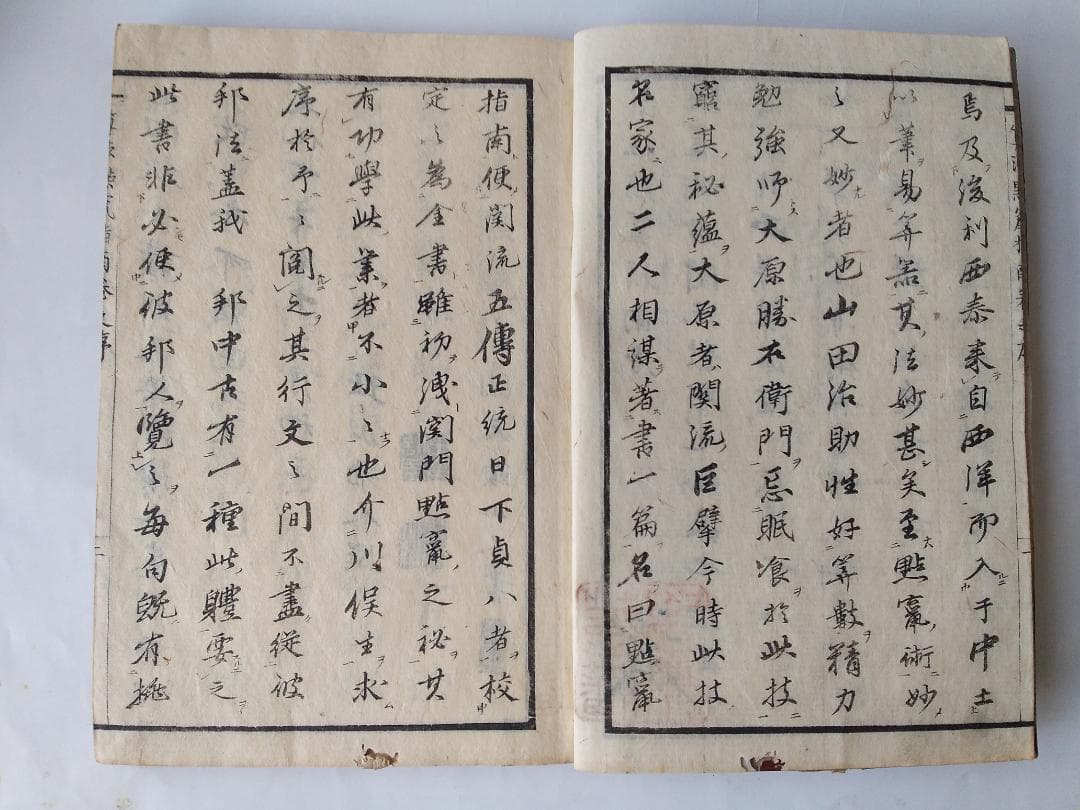 焉及後利西泰来自西洋而入于中土
以筆易筭其法妙甚矣至點竄術妙
之又妙者也山田治助性好筭數精力
勉強師大原勝右衛門忘眠飡於此技
竆其秘蘊大原者関流巨擘今時此技
名家也二人相謀著書一篇名曰點竄
指南便関流五傳正統日下貞八者校
定之為全書雖初洩関門點竄之秘其
有功學此業者不小々也介川俣生求
序於予々閲之其行文之間不盡從彼
邦法蓋我邦中古有一種此體要之
此書非必便彼邦人覽之每句既有